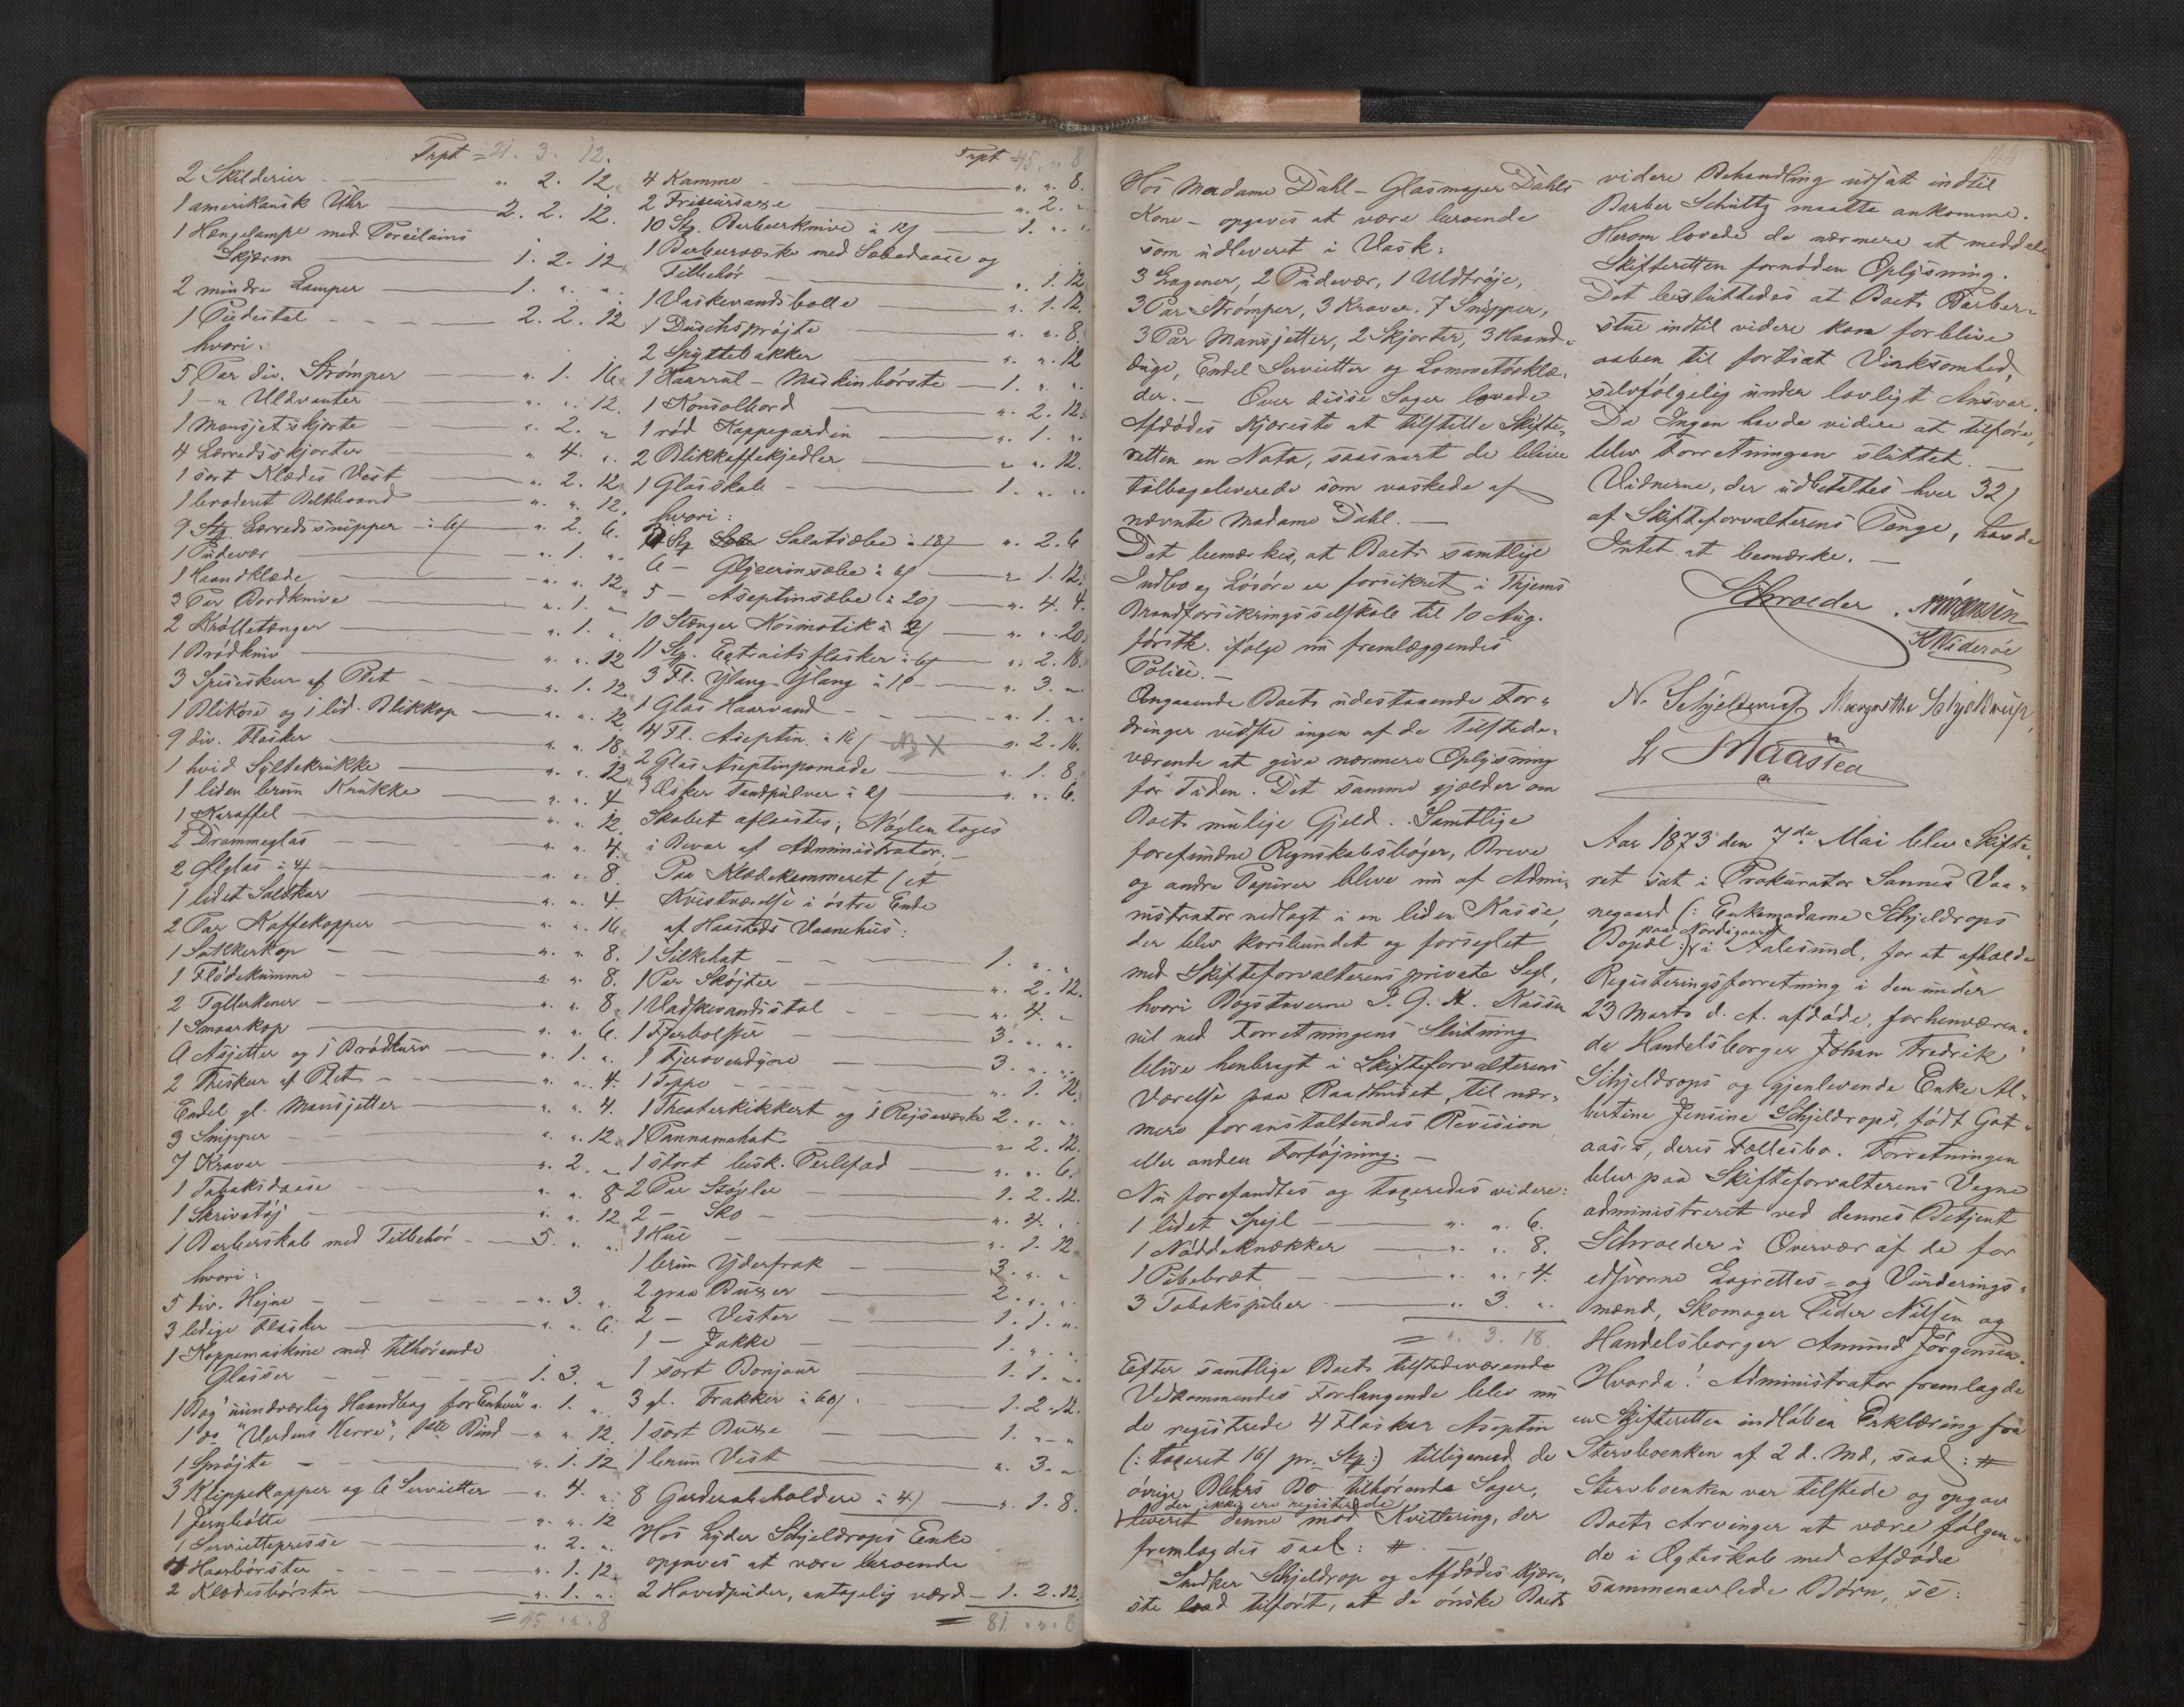 Trpt = 21. 3. 12.
2 Skilderier — " 2. 12.
1 amerikansk Uhr — 2. 2. 12.
1 Hængelampe med Porcilains
Skjærm — 1. 2. 12
2 mindre Lamper — 1. " "
1 Pidestal — 2. 2. 12
hvori:
5 Par div. Strømper — " 1. 16
1 — " Uldvanter — " " 12.
1 Mansjetskjorte — " 2. "
4 Lærredsskjorter — " 4. "
1 sort Klædes Vest — " 2. 12
1 broderet Beltebaand — " " 12.
9 Stz. Lærredssnipper à 6/ — " 2. 6.
1 Pudevær — " 1. "
1 Haandklæde — " " 12.
3 Par Bordknive — " 1. "
2 Krølletænger — " 1. "
1 Brødkniv — " " 12
3 Spiseskeer af Plet — " 1. 12
1 Blikøse og 1 lid. Blikkop — " " 12.
9 div. Flasker — " " 18.
1 hvid Syltekrukke — " " 12
1 liden brun Krukke — " " 4
1 Karaffel — " " 12.
2 Drammeglas — " " 4.
2 Ølglas à 4 — " " 8.
1 lidet Saltkar — " " 4.
2 Par Kaffekopper — " " 16
1 Sukkerkop — " " 8.
1 Flødekumme — " " 8.
2 Tallerkener — " " 8.
1 Smaarkop — " " 6.
6 Asjetter og 1 Brødkurv — " 1. "
2 Theskeer af Plet — " " 4.
Endel gl. Mansjetter — " " 4.
3 Snipper — " " 12.
7 Kraver — " 2. "
1 Tobaksdaase — " " 8
1 Skrivetøj — " " 12
1 Barberskab med Tilbehør — 5. " "
hvori:
5 div. Hejne — " 3. "
3 ledige Flasker — " " 6.
1 Koppemaskine med tilhørende
Glasser — 1. 3. "
1 Bog "uundværlig Haandbog for Enhver" " 1. "
1 do "Verdens Herre", 1ste Bind — " " 12
1 Sprøjte — " 1. 12
3 Klippekapper og 6 Servietter — " 4. "
1 Jernbøtte — " " 12
1 Serviettepresse — " 2. "
4 Haarbørster — " 1. 12
2 Klædesbørster — " 1. "
= 45. " . 8
Trpt = 45. " 8
4 Kamme — " " 8.
2 Friseursaxe — " 2. "
10 Stz. Barberknive à 12/ — 1. " "
1 Barbervæske med Sæbedaase og
Tilbehør — " 1. 12
1 Vaskevandsbolle — " 1. 12.
1 Duschsprøjte — " " 8.
2 Spyttebakker — " " 12
1 Haarrul-Maskinbørste — 1. " "
1 Konsolbord — " 2. 12.
1 rød Kappegardin — " 1. "
2 Blikkaffekjedler — " " 12.
1 Glasskab — 1. " "
hvori:
3 Stz Salatsæbe à 18/ — " 2. 6
6 — Glycerinsæbe à 6/ — " 1. 12.
5 — Aseptinsæbe à 20/ — " 4. 4.
10 Stænger Kosmetik à 2/ — " " 20.
11 Stz. Extraitsflasker à 6/ — " 2. 18.
3 Fl. Ylang-Ylang à 1 — " 3. "
1 Glas Haarvand — " 1. "
4 Fl. Aseptin à 16/ NB X — " 2. 16.
2 Glas Aseptinpomade — " 1. 8.
3 Æsker Tandpulver à 2/ — " " 6.
Skabet aflaastes, Nøglen toges
i Bevar af Administrator. —
Paa Klædekammeret (et
Kvistværelse i østre Ende
af Haasteds Vaanehus:
1 Silkehat — 1. " "
1 Par Skøjter — " 2. 12.
1 Vadskevandsstol — " 4. "
1 Fjerbolster — 3. " "
1 Fjeroverdyne — 3. " "
1 Teppe — " 1. 12.
1 Theaterkikkert og 1 Rejsevæske 2. " "
1 Pannamahat — " 2. 12.
1 stort lusk. Perlefad — " " 6.
2 Par Støvler — 1. 2. 12.
2 — Sko — " 4. "
1 Hue — " 1. 12
1 brun Yderfrak — 3. " "
2 graa Buxer — 2. " "
2 — Vester — 1. 1. "
1 — Jakke — 1. " "
1 sort Bonjour — 1. 1. "
3 gl. Frakker à 60/ — 1. 2. 12.
1 sort Buxe — 1. " "
1 brun Vest — " 3. "
8 Garderobeholdere à 4/ — " 1. 8.
Hos Lyder Schjeldrops Enke
opgaves at være beroende
2 Hovedpuder, antagelig værd — 1. 2. 12.
= 81. " . 8
Hos Madame Dahl — Glasmager Dahls
Kone — opgaves at være beroende
som udleveret i Vask:
3 Lagener, 2 Pudevær, 1 Uldtrøje,
3 Par Strømper, 3 Kraver. 7 Snipper,
3 Par Mansjetter, 2 Skjorter, 3 Haand-
duge, Endel Servietter og Lommetørklæ-
der. — Over disse Sager lovede
Afdødes Kjæreste at tilstille Skifte-
retten en Nota, saasnart de bleve
tilbageleverede som vaskede af
nævnte Madame Dahl. —
Det bemærkes, at Boets samtlige
Indbo og Løsøre er forsikret i Thjems
Brandforsikringsselskab til 10 Aug.
førstk. ifølge nu fremlæggendes
Police. —
Angaaende Boets udestaaende For-
dringer vidste ingen af de Tilstede-
værende at give nærmere Oplysning
for Tiden. Det samme gjælder om
Boets mulige Gjeld. Samtlige
forefundne Regnskabsbøger, Breve
og andre Papirer bleve nu af Admi-
nistrator nedlagt i en liden Kasse,
der blev korsbundet og forseglet
med Skifteforvalterens private Segl,
hvori Bogstaverne I. G. K. Kassen
vil ved Forretningens Slutning
blive henbragt i Skifteforvalterens
Værelse paa Raadhuset, til nær-
mere foranstaltendes Revision
eller anden Forføjning. —
Nu forefandtes og taxeredes videre:
1 lidet Spejl — " " 6.
1 Nøddeknækker — " " 8.
1 Pibebræt — " " 4.
3 Tobakspiber — " 3. "
= " 3. 18.
Efter samtlige Boets tilstedeværende
Vedkommendes Forlangende blev nu
de registrede 4 Flasker Aseptin
(: taxeret 16/ pr. Stz:) tilligemed de
øvrige Blehrs Bo tilhørende Sager,
der ikke ere registrerede
leveret denne mod Kvittering, der
fremlagdes saal: #. —
Snedker Schjeldrop og Afdødes Kjære-
ste lod tilført, at de ønske Boets
144
videre Behandling udsat indtil
Barber Schultz maatte ankomme.
Herom lovede de nærmere at meddele
Skifteretten fornøden Oplysning.
Det besluttedes at Boets Barber-
stue indtil videre kan forblive
aaben til fortsat Virksomhed,
selvfølgelig under lovligt Ansvar.
Da Ingen havde videre at tilføre,
blev Forretningen sluttet. —
Vidnerne, der udbetaltes hver 32/
af Skifteforvalterens Penge, havde
Intet at bemærke. —
Schroeder.
K Widerøe
N. Schjelderup Margrethe Schjeldrup,
L Maasted
Aar 1873 den 7de Mai blev Skifte-
ret sat i Prokurator Sannes Vaa-
negaard (: Enkemadame Schjeldrops
paa Nørdigaard
Bopæl:) i Aalesund, for at afholde
Registeringsforretning i den under
23 Marts d. A. afdøde, forhenværen-
de Handelsborger Johan Fredrik
Schjeldrops og gjenlevende Enke Al-
bertine Jensine Schjeldrops, født Got-
aas's, deres Fællesbo. Forretningen
blev paa Skifteforvalterens Vegne
administreret ved dennes Betjent
Schroeder i Overvær af de for
edsvorne Lagrettes- og Vurderings-
mænd, Skomager Peder Nilsen og
Handelsborger Amund Jørgensen.
Hvorda: Administrator fremlagde
en Skifteretten indløben Erklæring fra
Stervboenken af 2 d. Md, saal: #
Stervboenken var tilstede og opgav
Boets Arvinger at være følgen-
de i Ægteskab med Afdøde
sammenavlede Børn, se: